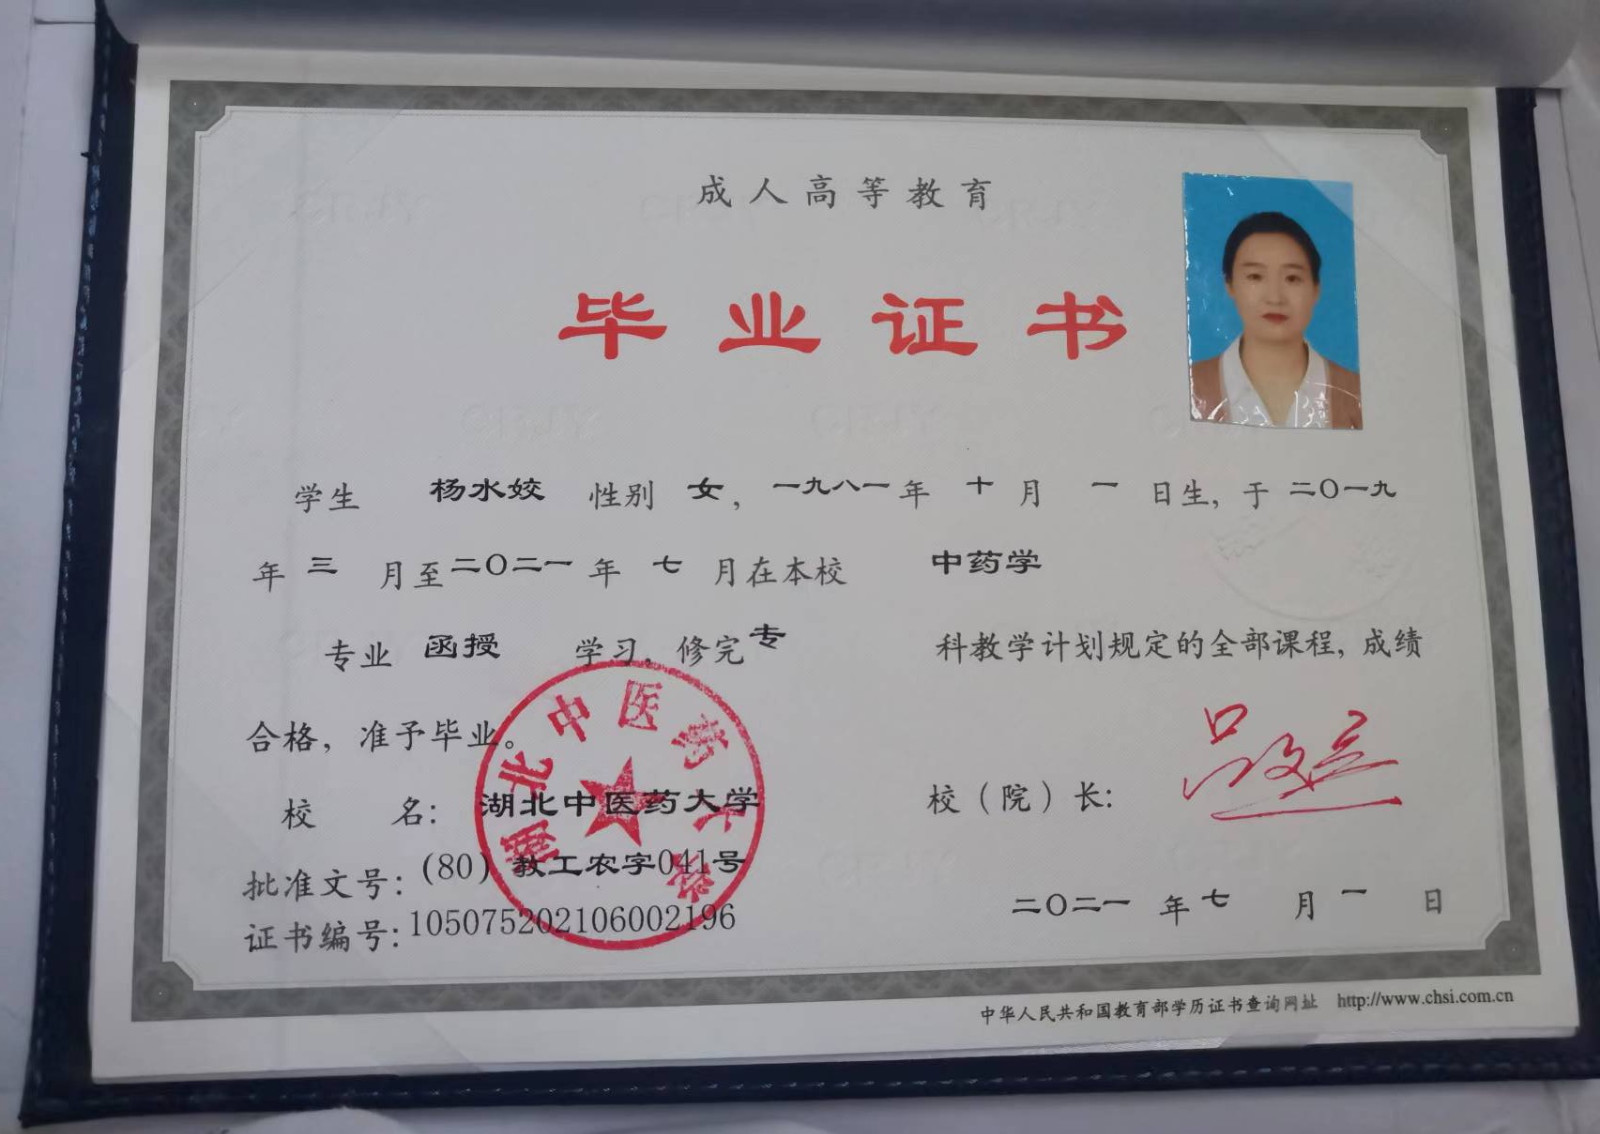 成人高等教育
毕业证书
学生 杨水姣 性别 女，一九八一年 十 月 一 日生，于 二〇一九
年 三 月至二〇二一年 七 月在本校 中药学
专业 函授 学习，修完专 科教学计划规定的全部课程，成绩
合格，准予毕业。
校 名：湖北中医药大学
校（院）长：
批准文号：(80)教工农字041号
证书编号：105075202106002196
二〇二一 年 七 月 一 日
湖北中医药大学
中华人民共和国教育部学历证书查询网址 http://www.chsi.com.cn